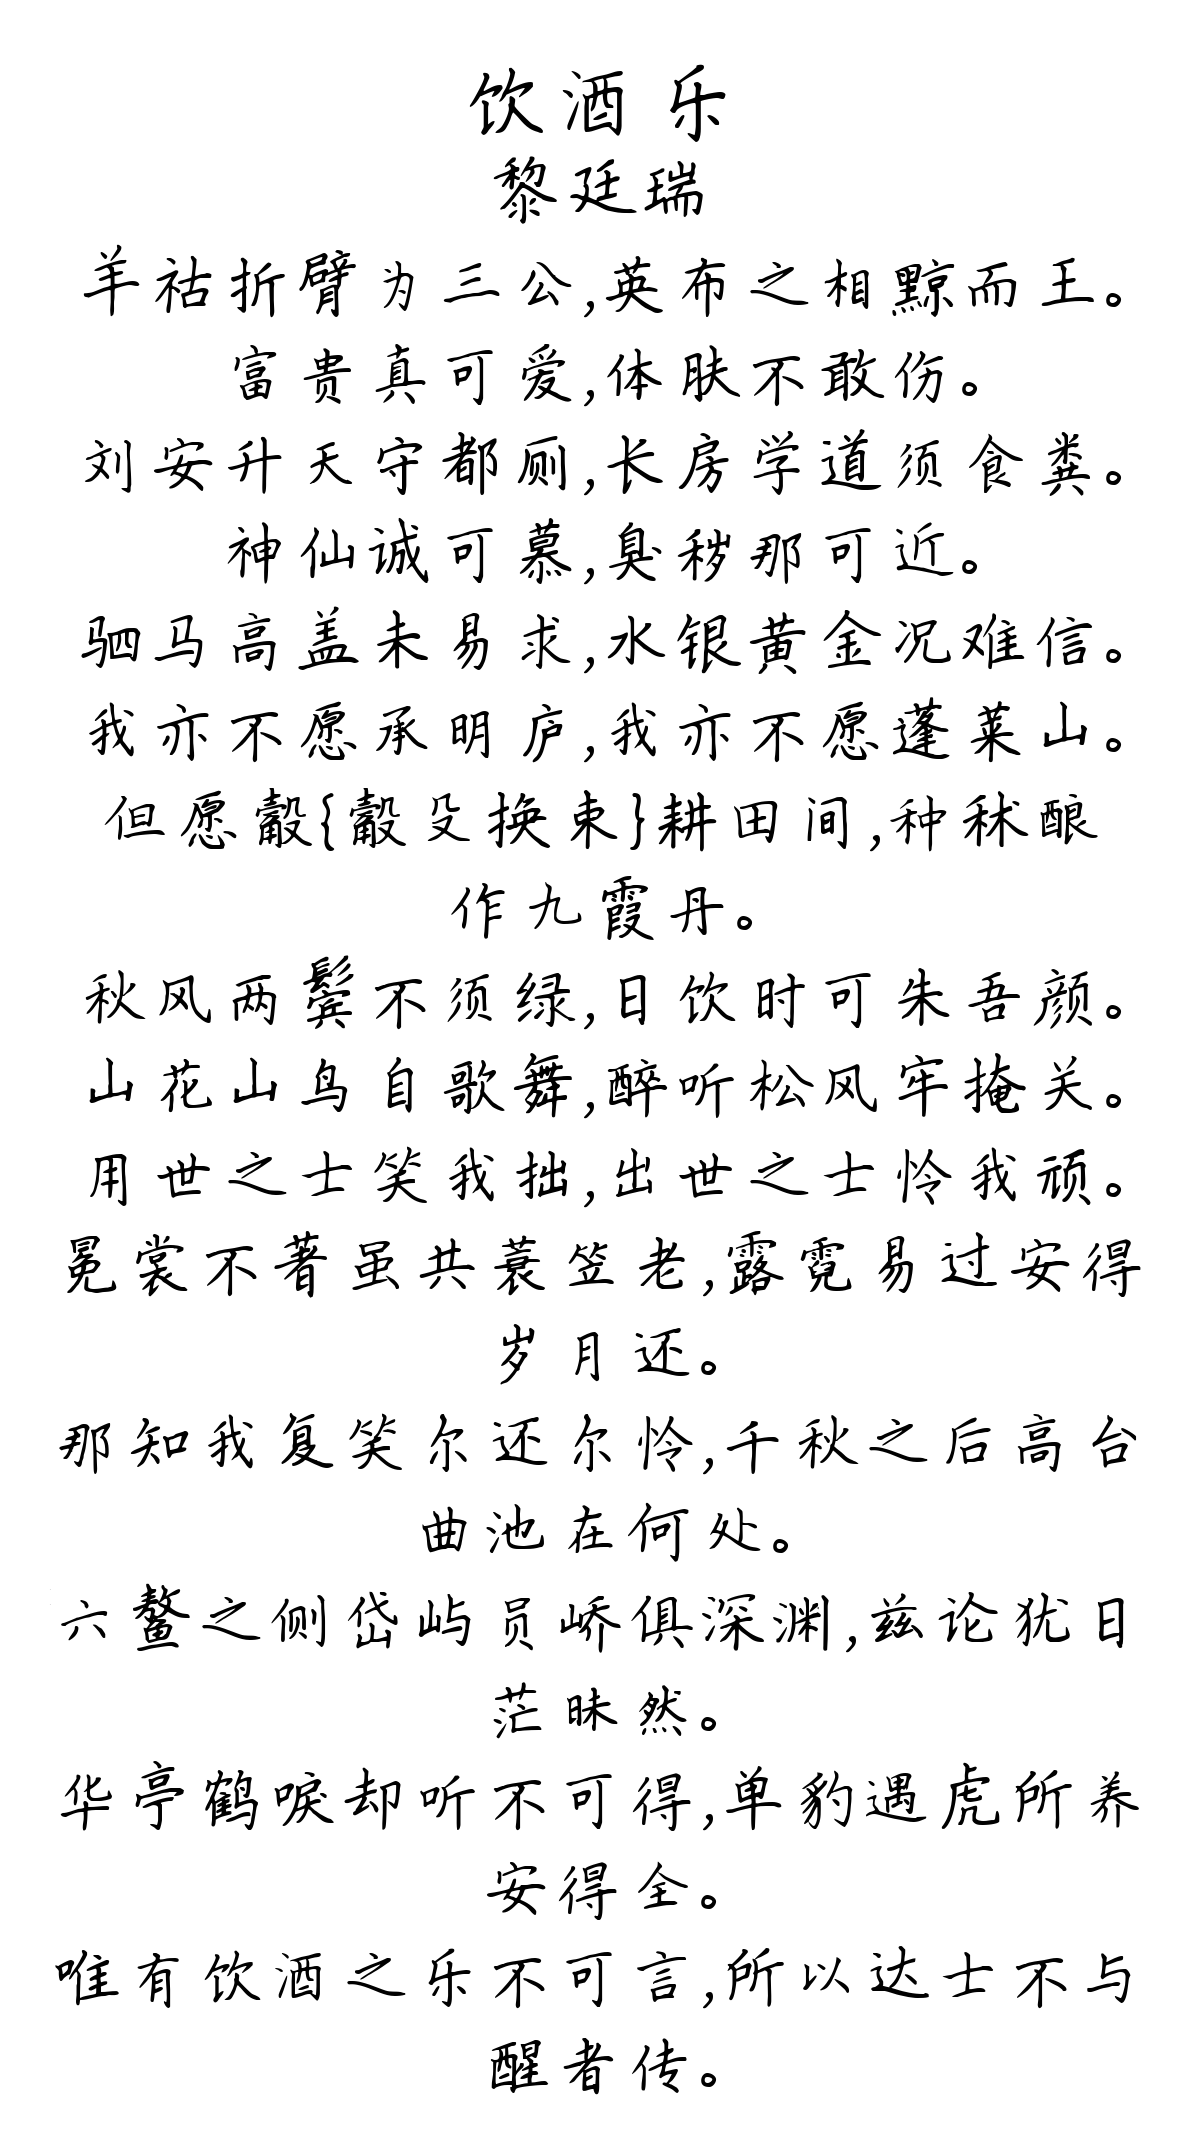 饮酒乐
黎廷瑞
羊祜折臂为三公,英布之相黥而王。
富贵真可爱,体肤不敢伤。
刘安升天守都厕,长房学道须食粪。
神仙诚可慕,臭秽那可近。
驷马高盖未易求,水银黄金况难信。
我亦不愿承明庐,我亦不愿蓬莱山。
但愿觳{觳殳换束}耕田间,种秫酿
作九霞丹。
秋风两鬓不须绿,日饮时可朱吾颜。
山花山鸟自歌舞,醉听松风牢掩关。
用世之士笑我拙,出世之士怜我顽。
冕裳不著虽共蓑笠老,露霓易过安得
岁月还。
那知我复笑尔还尔怜,千秋之后高台
曲池在何处。
六鳌之侧岱屿员峤俱深渊,兹论犹日
茫昧然。
华亭鹤唳却听不可得,单豹遇虎所养
安得全。
唯有饮酒之乐不可言,所以达士不与
醒者传。